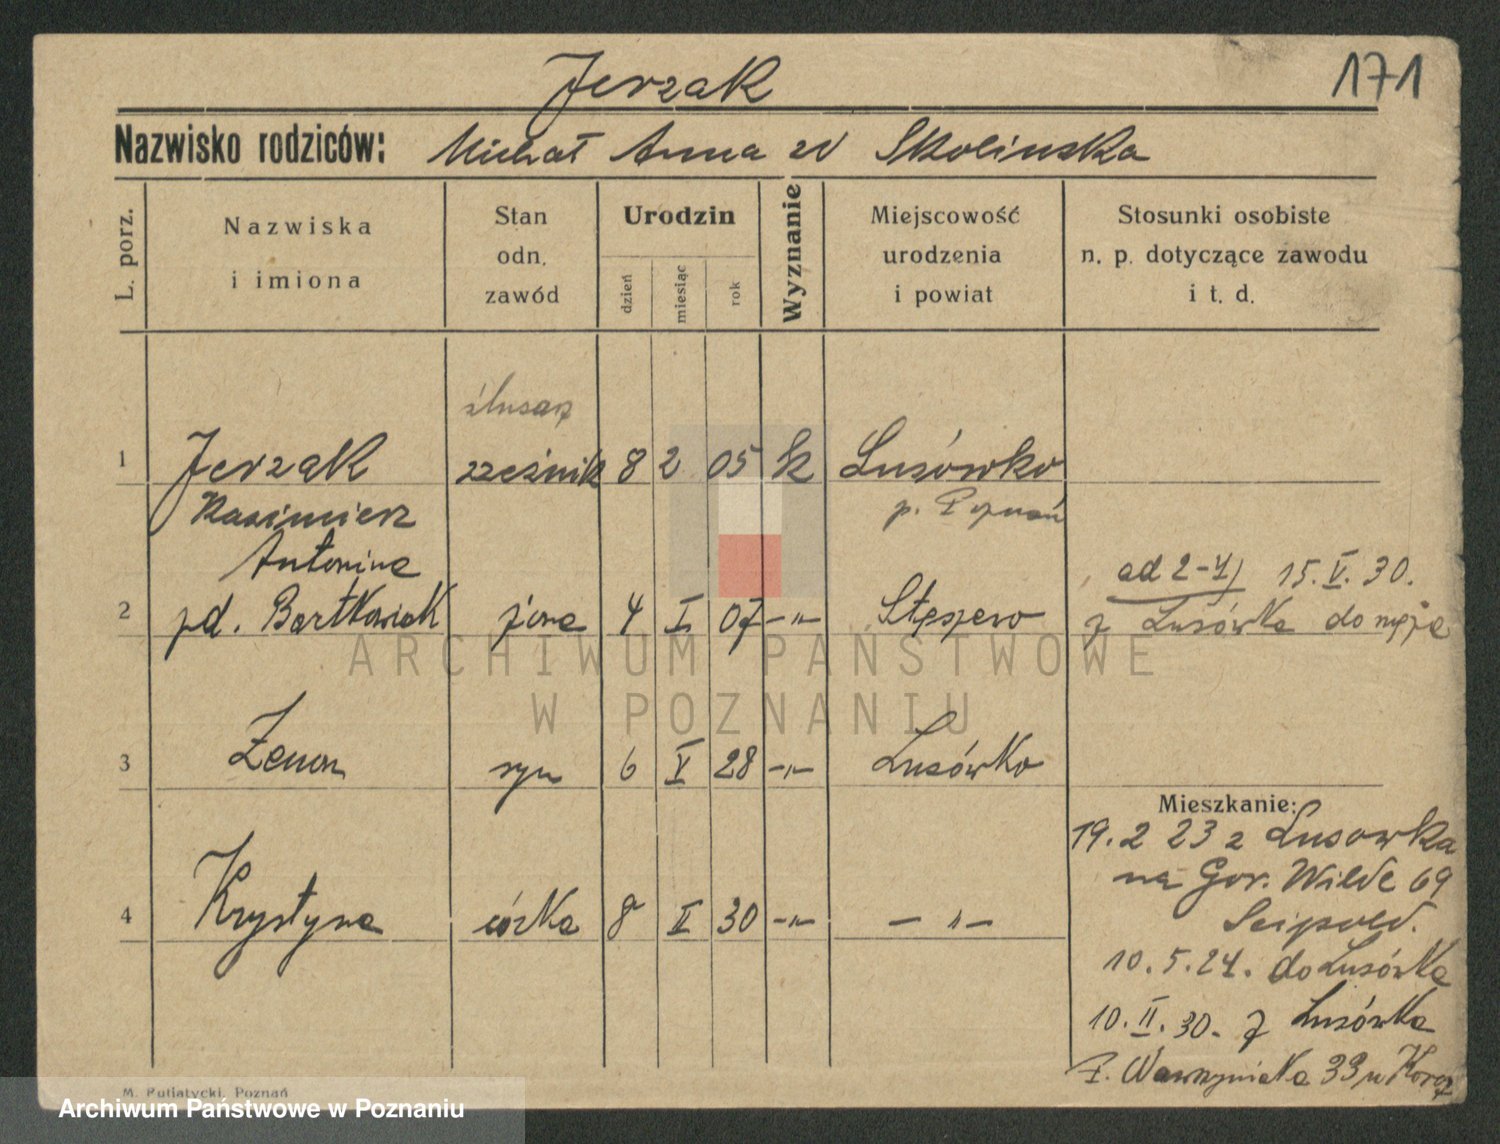 Jerzak
171
Nazwisko rodziców: Michał Anna zd Skolinska
L. porz.
Nazwiska
i imiona
Stan
odn.
zawód
Urodzin
dzień
miesiąc
rok
Wyznanie
Miejscowość
urodzenia
i powiat
Stosunki osobiste
n. p. dotyczące zawodu
i t. d.
ślusarz
1 Jerzak rzeźnik 8 2 05 k Lusówko
Kazimierz p. Poznań
Antonina ad 2-4) 15.V.30.
2 pd. Bartkowiak żona 4 I 07 -„- Stęszewo z Lusówka do męża
ARCHIWUM PAŃSTWOWE
W POZNANIU
3 Zenon syn 6 V 28 -„- Lusówko
Mieszkanie:
19.2 23 z Lusowka
na Gor. Wilde 69
4 Krystyna córka 8 II 30 -„- - „ - Seipold.
10.5.24. do Lusówka
10.II.30. z Lusówka
F. Wawrzyniaka 33 u
M. Putiatycki, Poznań
Archiwum Państwowe w Poznaniu